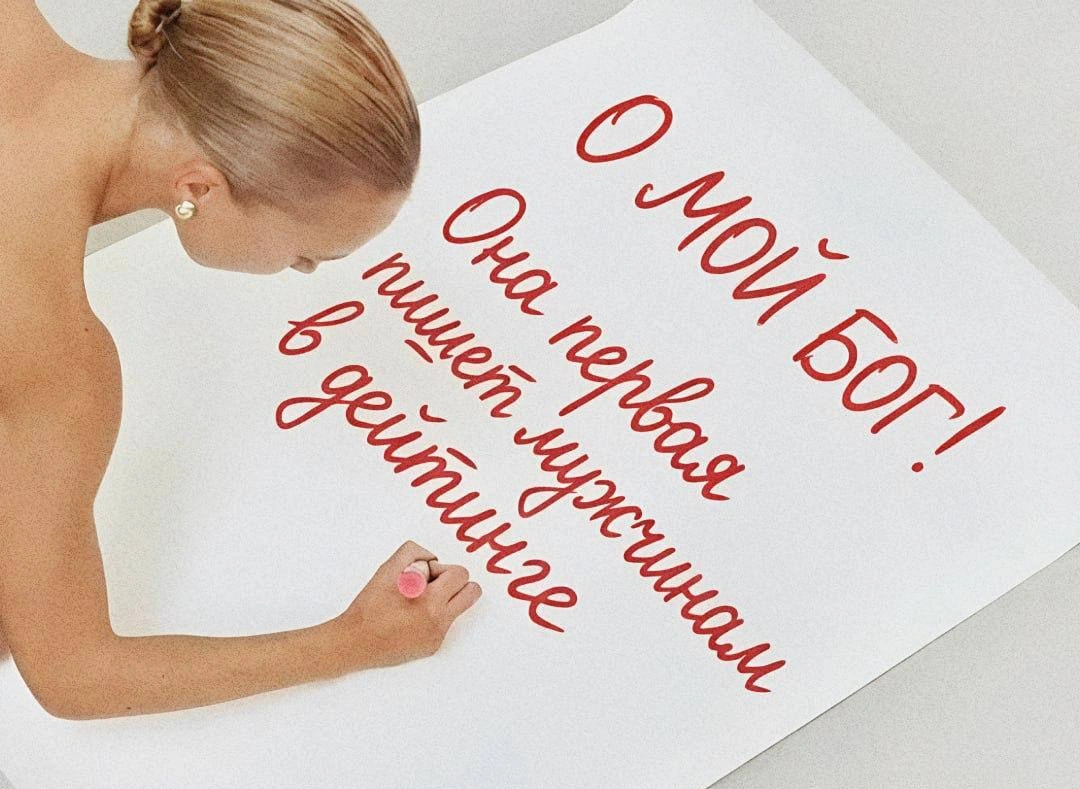 О МОЙ БОГ!
Она первая
пишет мужчинам
в дейтинге